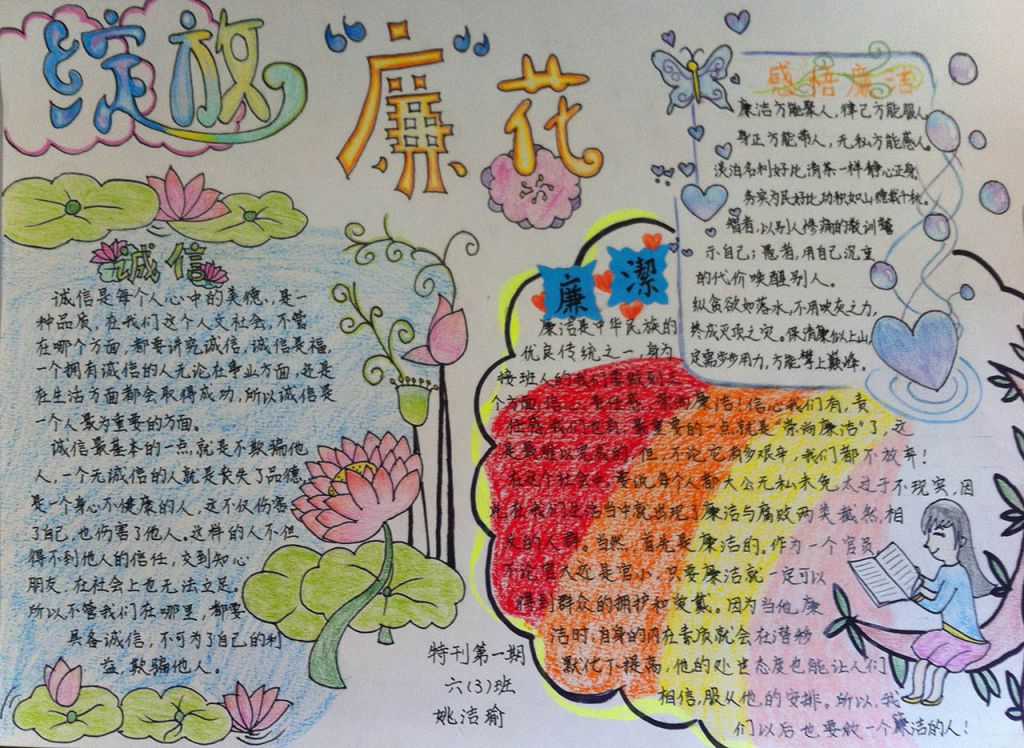 绽放“廉”花
诚信
诚信是每个人心中的美德,是一
种品质,在我们这个人文社会,不管
在哪个方面,都要讲究诚信,诚信是福,
一个拥有诚信的人无论在事业方面,还是
在生活方面都会取得成功,所以诚信是
一个人最为重要的方面。
诚信最基本的一点,就是不欺骗他
人,一个无诚信的人就是丧失了品德,
是一个身心不健康的人,这不仅伤害
了自己,也伤害了他人。这样的人不但
得不到他人的信任,交到知心
朋友,在社会上也无法立足。
所以不管我们在哪里,都要
具备诚信,不可为了自己的利
益,欺骗他人。
特刊第一期
六(3)班
姚洁瑜
感悟廉洁
廉洁方能聚人,律己方能服人,
身正方能带人,无私方能感人。
淡泊名利好比清茶一样静心正身,
务实为民好比功积如山德载千秋。
智者,以别人惨痛的教训警
示自己;愚者,用自己沉重
的代价唤醒别人。
纵贪欲如落水,不用吹灰之力,
终成灭顶之灾。保清廉似上山,
定需步步用力,方能攀上巅峰。
廉潔
廉洁是中华民族的
优良传统之一,身为
接班人的我们要做到三
个方面,信心、责任感、崇尚廉洁!信心我们有,责
任感我们也有,最重要的一点就是“崇尚廉洁”了,这
是最难以完成的,但,不论它有多艰辛,我们都不放弃!
在这个社会中,要说每个人都大公无私未免太过于不现实,因
此在我们生活当中就出现了廉洁与腐败两类截然相
反的人群。当然,首先是廉洁的。作为一个官员,
不论官大还是官小,只要廉洁就一定可以
得到群众的拥护和爱戴。因为当他,廉
洁时,自身的内在素质就会在潜移
默化下提高,他的处世态度也能让人们
相信,服从他,的安排。所以,我
们以后也要做一个廉洁的人!